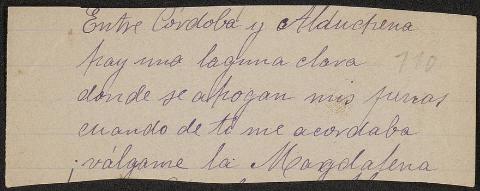 Entre Córdoba y Alduchena
hay una laguna clara 110
donde se ahogan mis penas
cuando de ti me acordaba
¡válgame la Magdalena